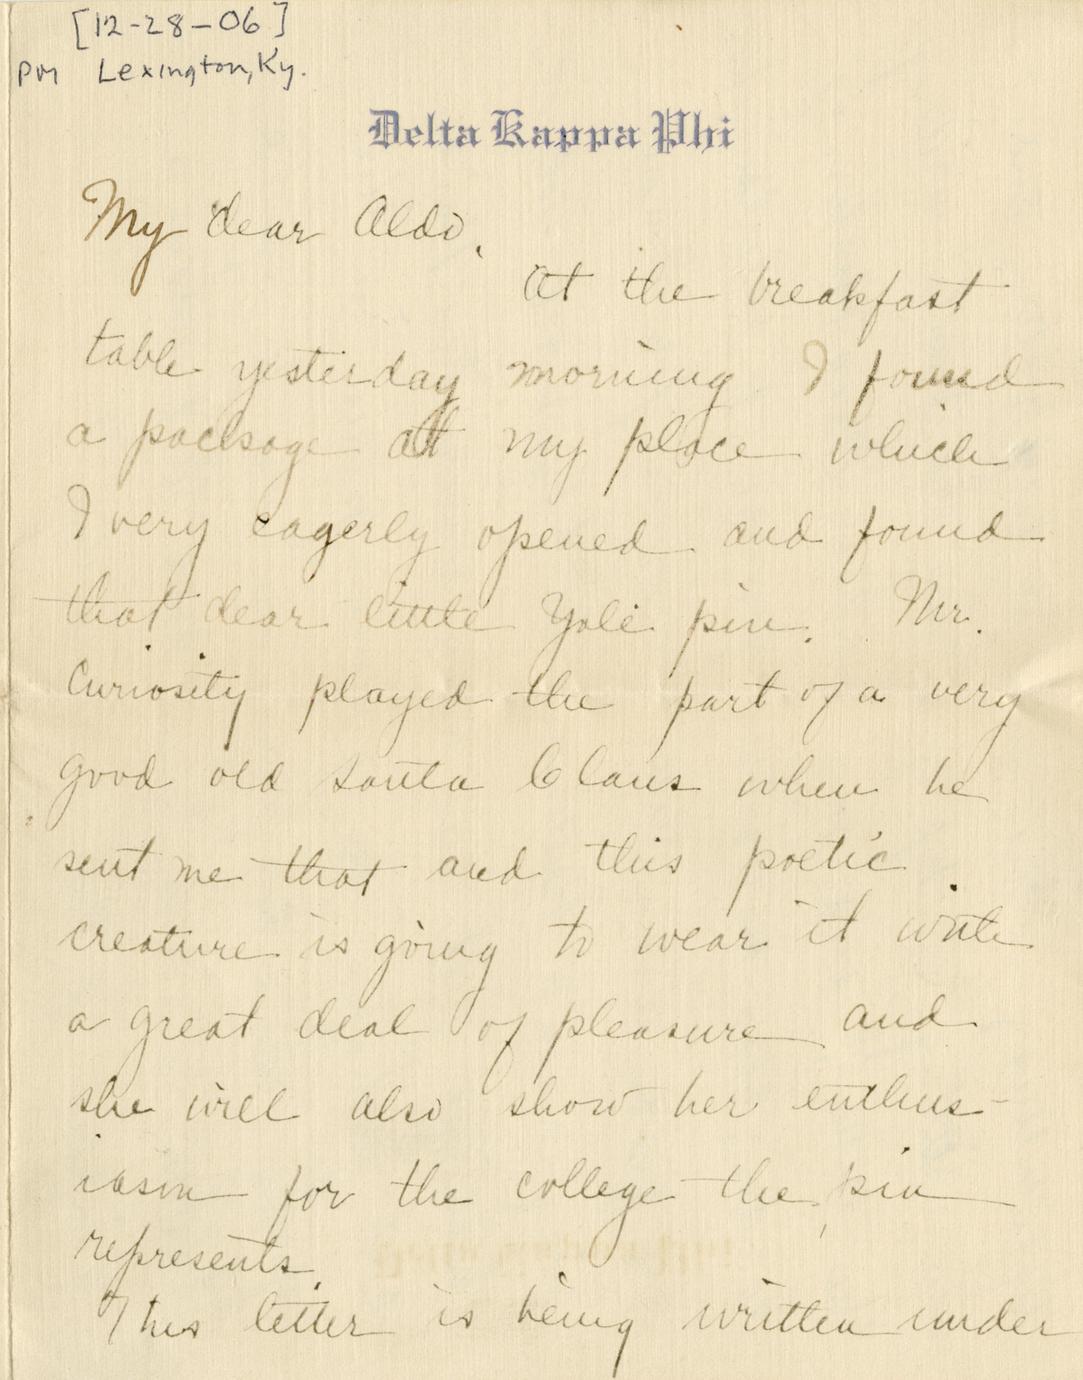 [12-28-06]
PM Lexington, Ky.
Delta Kappa Phi
My dear Aldo,
At the breakfast
table yesterday morning I found
a package at my place which
I very eagerly opened and found
that dear little Yale pin. Mr.
Curiosity played the part of a very
good old Santa Claus when he
sent me that and this poetic
creature is going to wear it with
a great deal of pleasure and
she will also show her enthus-
iasm for the college the pin
represents.
This letter is being written under